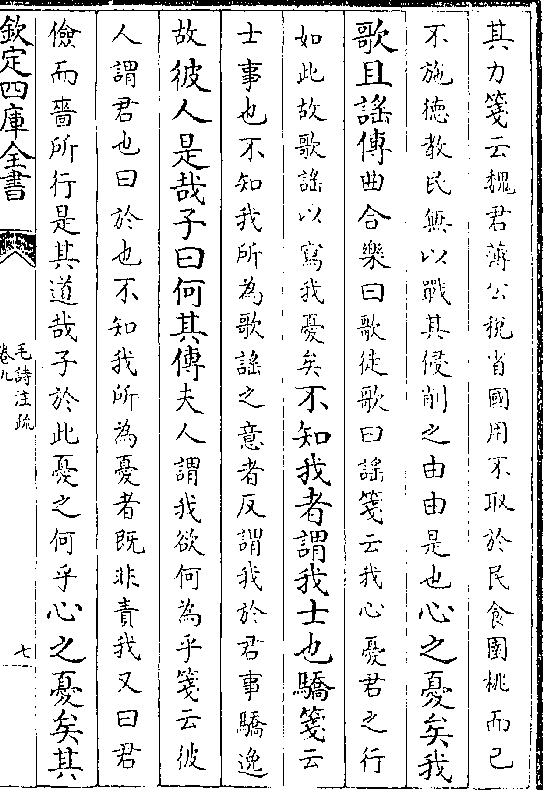 其力箋云魏君薄公稅省國用不取於民食園桃而已
不施徳教民無以戰其侵削之由由是也心之憂矣我
歌且謡傳曲合樂曰歌徒歌曰謡箋云我心憂君之行
如此故歌謡以寫我憂矣不知我者謂我士也驕箋云
士事也不知我所為歌謡之意者反謂我於君事驕逸
故彼人是哉子曰何其傳夫人謂我欲何為乎箋云彼
人謂君也曰於也不知我所為憂者既非責我又曰君
儉而嗇所行是其道哉子於此憂之何乎心之憂矣其
欽定四庫全書
毛詩注疏
卷九
七